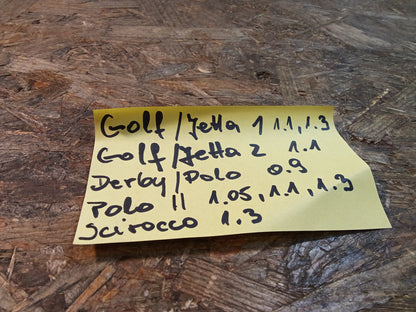 Golf/Jetta 1 1.1, 1.3
Golf/Jetta 2 1.1
Derby/Polo 0.9
Polo II 1.05, 1.1, 1.3
Scirocco 1.3